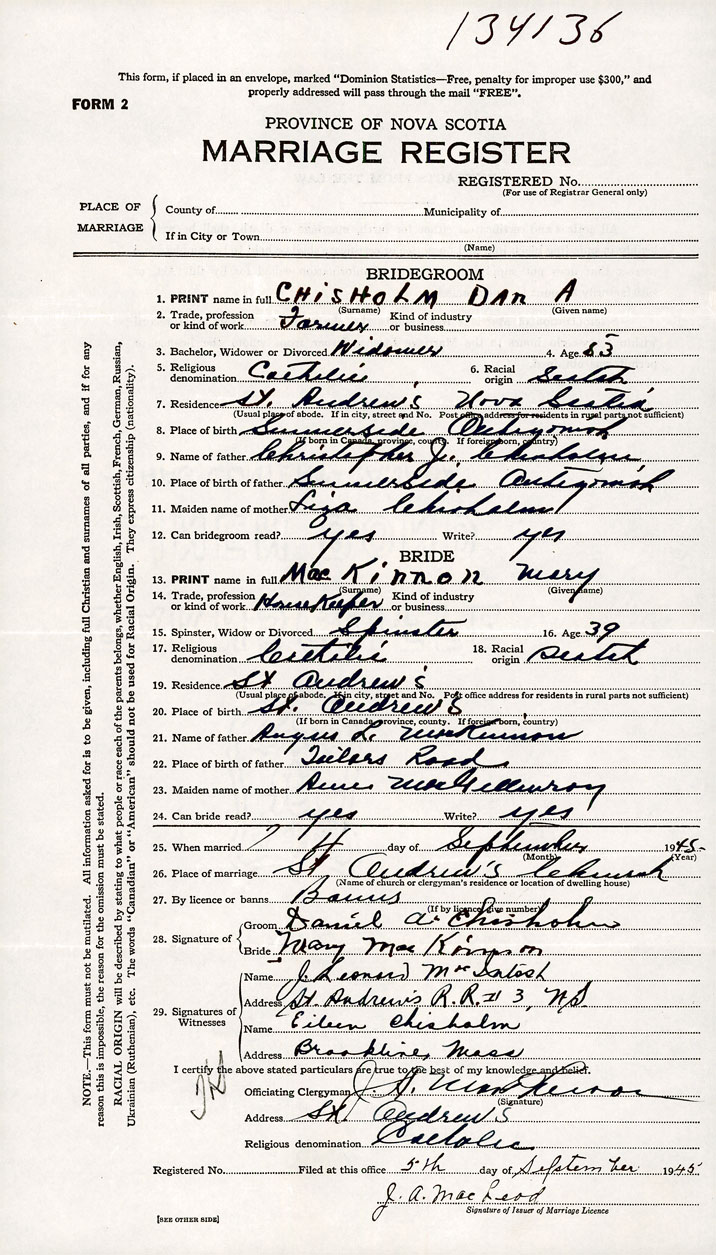 134136
This form, if placed in an envelope, marked “Dominion Statistics—Free, penalty for improper use $300,” and
properly addressed will pass through the mail “FREE”.
FORM 2
PROVINCE OF NOVA SCOTIA
MARRIAGE REGISTER
REGISTERED No.
(For use of Registrar General only)
PLACE OF MARRIAGE
County of Municipality of
If in City or Town
(Name)
BRIDEGROOM
1. PRINT name in full CHISHOLM DAN A
(Surname) (Given name)
2. Trade, profession or kind of work Farmer Kind of industry or business
3. Bachelor, Widower or Divorced Widower 4. Age 53
5. Religious denomination Catholic 6. Racial origin Scotch
7. Residence St. Andrew's Nova Scotia
(Usual place of abode. If in city, street and No. Post office address for residents in rural parts not sufficient)
8. Place of birth Summerside Antigonish
(If born in Canada, province, county. If foreign born, country)
9. Name of father Christopher J. Chisholm
10. Place of birth of father Summerside Antigonish
11. Maiden name of mother Liza Chisholm
12. Can bridegroom read? yes Write? yes
BRIDE
13. PRINT name in full Mac Kinnon Mary
(Surname) (Given name)
14. Trade, profession or kind of work HouseKeeper Kind of industry or business
15. Spinster, Widow or Divorced Spinster 16. Age 39
17. Religious denomination Catholic 18. Racial origin Scotch
19. Residence St Andrew's
(Usual place of abode. If in city, street and No. Post office address for residents in rural parts not sufficient)
20. Place of birth St. Andrew's
(If born in Canada, province, county. If foreign born, country)
21. Name of father Angus L. MacKinnon
22. Place of birth of father Tailors Road
23. Maiden name of mother Annie MacGillivray
24. Can bride read? yes Write? yes
25. When married 4 day of September 1945
(Month) (Year)
26. Place of marriage St Andrew's Church
(Name of church or clergyman's residence or location of dwelling house)
27. By licence or banns Banns
(If by licence, give number)
28. Signature of
Groom Daniel A. Chisholm
Bride Mary Mac Kinnon
29. Signatures of Witnesses
Name J. Leonard McIntosh
Address St. Andrew's R.R. # 3, NS
Name Eileen Chisholm
Address Brookline, Mass
I certify the above stated particulars are true to the best of my knowledge and belief.
Officiating Clergyman
(Signature)
Address St Andrew's
Religious denomination Catholic
Registered No. Filed at this office 5th day of September 1945
J. A. MacLeod
Signature of Issuer of Marriage Licence
[SEE OTHER SIDE]
NOTE.—This form must not be mutilated. All information asked for is to be given, including full Christian and surnames of all parties, and if for any
reason this is impossible, the reason for the omission must be stated.
RACIAL ORIGIN will be described by stating to what people or race each of the parents belongs, whether English, Irish, Scottish, French, German, Russian,
Ukrainian (Ruthenian), etc. The words “Canadian” or “American” should not be used for Racial Origin. They express citizenship (nationality).